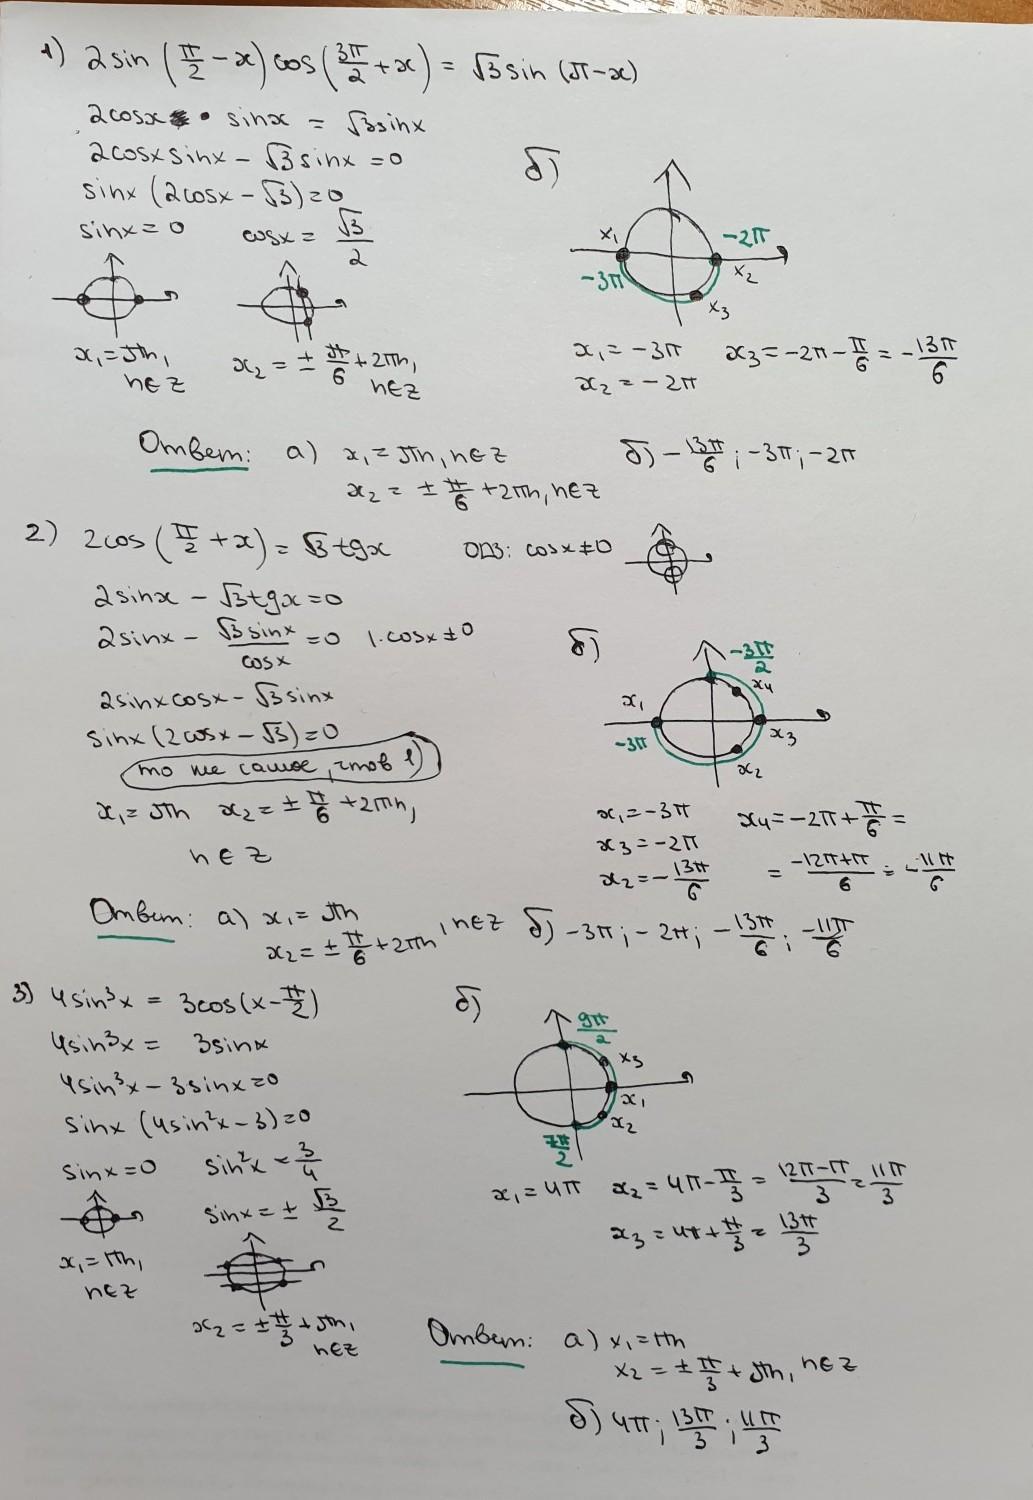 1) 2sin (π/2 - x) cos (3π/2 + x) = √3 sin (π - x)
2cosx · sinx = √3sinx
2cosxsinx - √3sinx = 0
sinx (2cosx - √3) = 0
sinx = 0 cosx = √3/2
x₁ = πn, n∈Z
x₂ = ± π/6 + 2πn, n∈Z
б)
x₁ -2π
-3π x₂
x₃
x₁ = -3π x₃ = -2π - π/6 = -13π/6
x₂ = -2π
Ответ: а) x₁ = πn, n∈Z б) -13π/6; -3π; -2π
x₂ = ± π/6 + 2πn, n∈Z
2) 2cos (π/2 + x) = √3 tgx ОДЗ: cosx ≠ 0
2sinx - √3tgx = 0
2sinx - √3sinx/cosx = 0 |·cosx ≠ 0
2sinxcosx - √3sinx
sinx (2cosx - √3) = 0
то же самое, что в 1)
x₁ = πn x₂ = ± π/6 + 2πn,
n ∈ Z
б)
-3π/2
x₁ x₄
-3π x₃
x₂
x₁ = -3π x₄ = -2π + π/6 =
x₃ = -2π
x₂ = -13π/6 = -12π+π/6 = -11π/6
Ответ: а) x₁ = πn
x₂ = ± π/6 + 2πn , n∈Z б) -3π; -2π; -13π/6; -11π/6
3) 4sin³x = 3cos(x - π/2)
4sin³x = 3sinx
4sin³x - 3sinx = 0
sinx (4sin²x - 3) = 0
sinx = 0 sin²x = 3/4
sinx = ± √3/2
x₁ = πn, n∈Z
x₂ = ± π/3 + πn, n∈Z
б)
9π/2
x₃
x₁
x₂
7π/2
x₁ = 4π x₂ = 4π - π/3 = 12π-π/3 = 11π/3
x₃ = 4π + π/3 = 13π/3
Ответ: а) x₁ = πn
x₂ = ± π/3 + πn, n∈Z
б) 4π; 13π/3; 11π/3